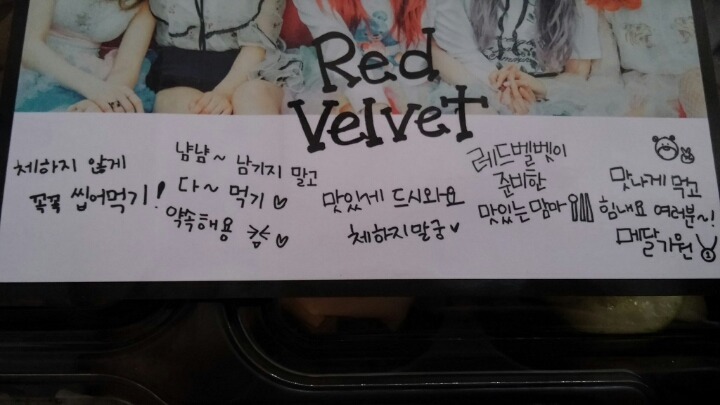 Red
Velvet
체하지 않게
꼭꼭 씹어먹기!
냠냠~ 남기지 말고
다~ 먹기♡
약속해용
맛있게 드시와요
체하지말궁♥
레드벨벳이
준비한
맛있는맘마
맛나게 먹고
힘내요 여러분~!
메달기원